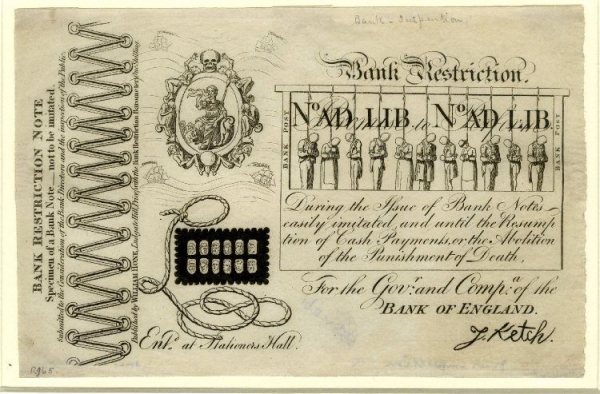 Bank
BANK RESTRICTION NOTE
Specimen of a Bank Note — not to be imitated.
Submitted to the Consideration of the Bank Directors and the inspection of the Public.
Published by WILLIAM HONE, Ludgate Hill,
Bank Restriction.
BANK POST
No. AD. LIB. No. AD. LIB.
BANK POST
During the Issue of Bank Notes
easily imitated, and until the Resump
tion of Cash Payments, or the Abolition
of the Punishment of Death,
For the Govr. and Compa. of the
BANK OF ENGLAND.
J. Ketch.
Entd. at Stationers Hall.